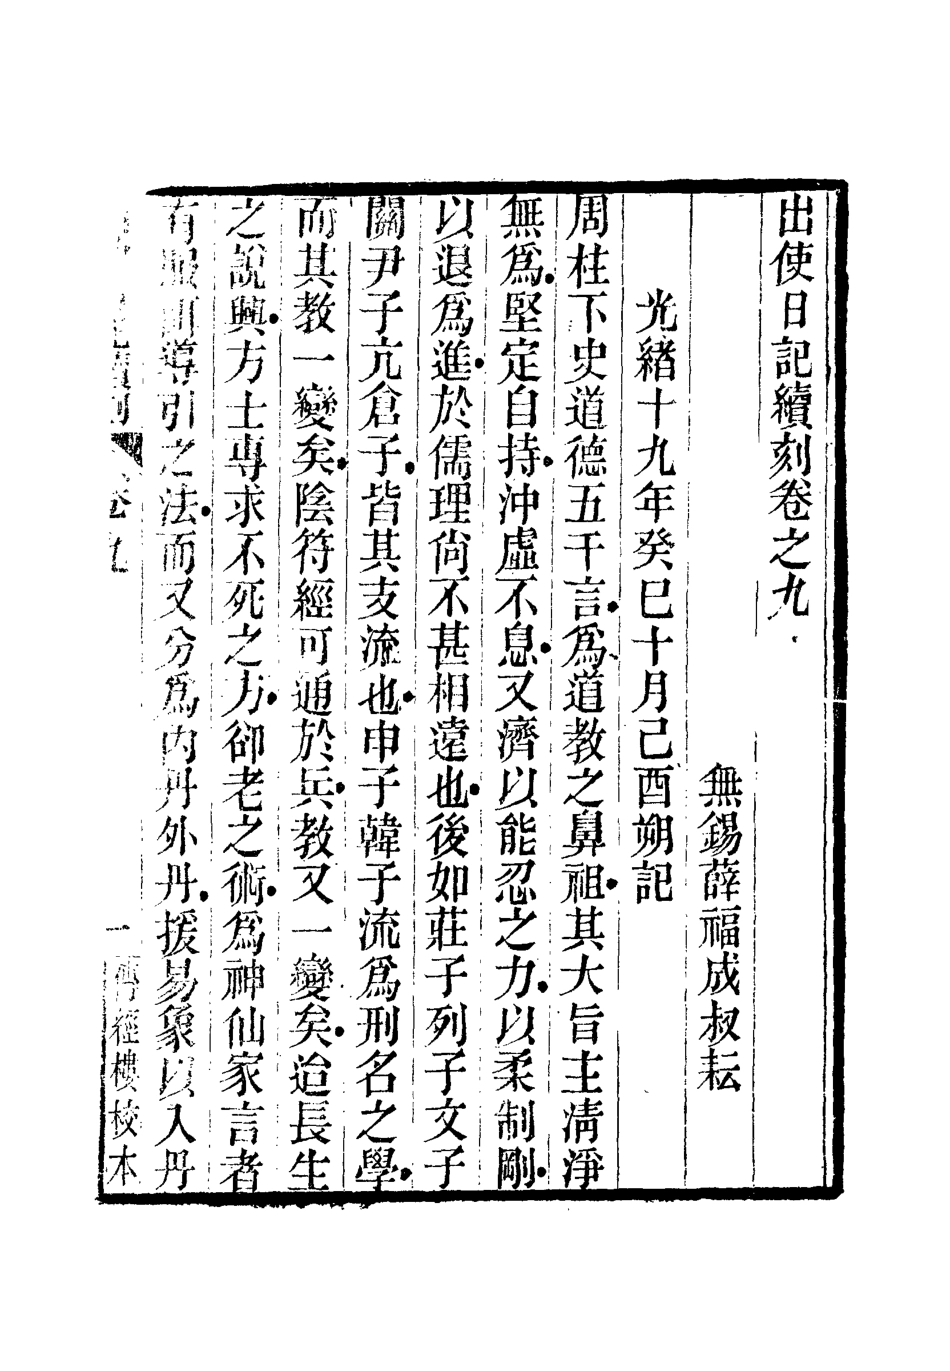 出使日記續刻卷之九
無錫薛福成叔耘
光緒十九年癸巳十月己酉朔記
周柱下史道德五千言爲道教之鼻祖其大旨主清淨
無爲堅定自持沖虛不息又濟以能忍之力以柔制剛
以退爲進於儒理尙不甚相遠也後如莊子列子文子
關尹子亢倉子皆其支流也申子韓子流爲刑名之學
而其教一變矣陰符經可通於兵教又一變矣迨長生
之說興方士專求不死之方卻老之術爲神仙家言者
有服 導引之法而又分爲內丹外丹援易象以入丹
續刻 卷九 一 經樓校本